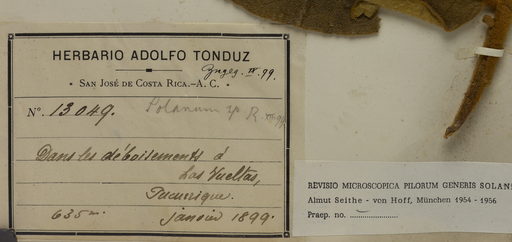 HERBARIO ADOLFO TONDUZ
Zngeg. IV. 99.
• SAN JOSÉ DE COSTA RICA.—A. C. •
Nº. 13049. Solanum sp R.
Dans les déboisements á
Las Vueltas,
Tucurrique.
635 m. janvier 1899.
REVISIO MICROSCOPICA PILORUM GENERIS SOLAN
Almut Seithe - von Hoff, München 1954 - 1956
Praep. no.